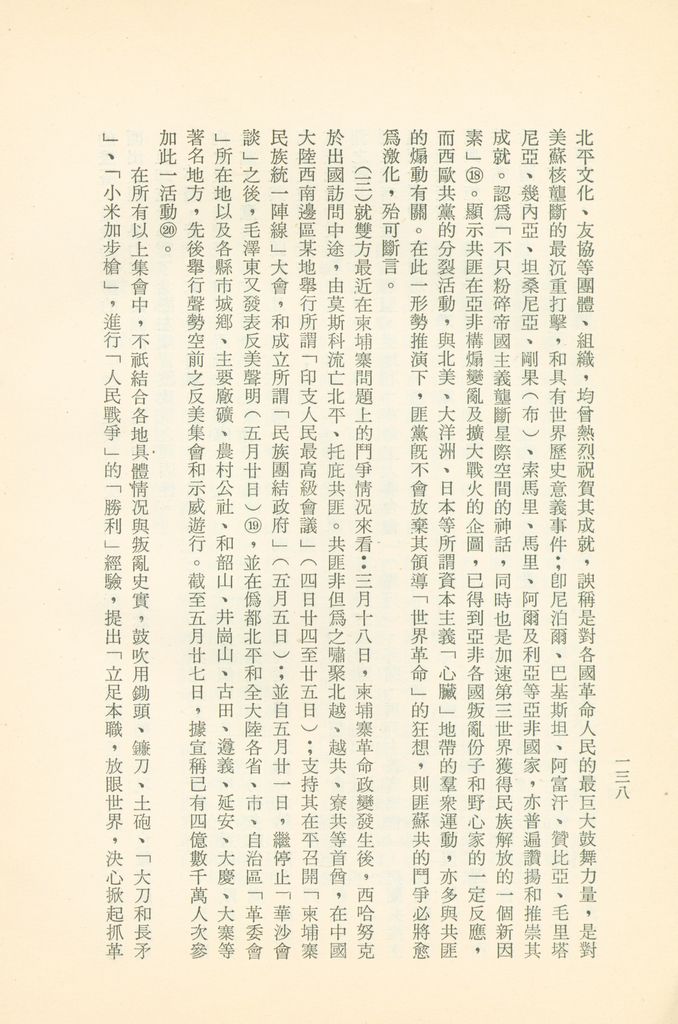 一三八
北平文化、友協等團體、組織，均曾熱烈祝賀其成就，諛稱是對各國革命人民的最巨大鼓舞力量，是對
美蘇核壟斷的最沉重打擊，和具有世界歷史意義事件；卽尼泊爾、巴基斯坦、阿富汗、贊比亞、毛里塔
尼亞、幾內亞、坦桑尼亞、剛果（布）、索馬里、馬里、阿爾及利亞等亞非國家，亦普遍讚揚和推崇其
成就。認爲「不只粉碎帝國主義壟斷星際空間的神話，同時也是加速第三世界獲得民族解放的一個新因
素」⑱。顯示共匪在亞非構煽變亂及擴大戰火的企圖，已得到亞非各國叛亂份子和野心家的一定反應，
而西歐共黨的分裂活動，與北美、大洋洲、日本等所謂資本主義「心臟」地帶的羣衆運動，亦多與共匪
的煽動有關。在此一形勢推演下，匪黨旣不會放棄其領導「世界革命」的狂想，則匪蘇共的鬥爭必將愈
爲激化，殆可斷言。
㈢就雙方最近在柬埔寨問題上的鬥爭情況來看：三月十八日，柬埔寨革命政變發生後，西哈努克
於出國訪問中途，由莫斯科流亡北平、托庇共匪。共匪非但爲之嘯聚北越、越共、寮共等首酋，在中國
大陸西南邊區某地舉行所謂「印支人民最高級會議」（四日廿四至廿五日）；支持其在平召開「柬埔寨
民族統一陣線」大會，和成立所謂「民族團結政府」（五月五日）；並自五月廿一日，繼停止「華沙會
談」之後，毛澤東又發表反美聲明（五月廿日）⑲，並在僞都北平和全大陸各省、市、自治區「革委會
」所在地以及各縣市城鄉、主要廠礦、農村公社、和韶山、井崗山、古田、遵義、延安、大慶、大寨等
著名地方，先後舉行聲勢空前之反美集會和示威遊行。截至五月廿七日，據宣稱已有四億數千萬人次參
加此一活動⑳。
在所有以上集會中，不祇結合各地具體情况與叛亂史實，鼓吹用鋤頭、鐮刀、土砲、「大刀和長矛
」、「小米加步槍」，進行「人民戰爭」的「勝利」經驗，提出「立足本職，放眼世界，決心掀起抓革